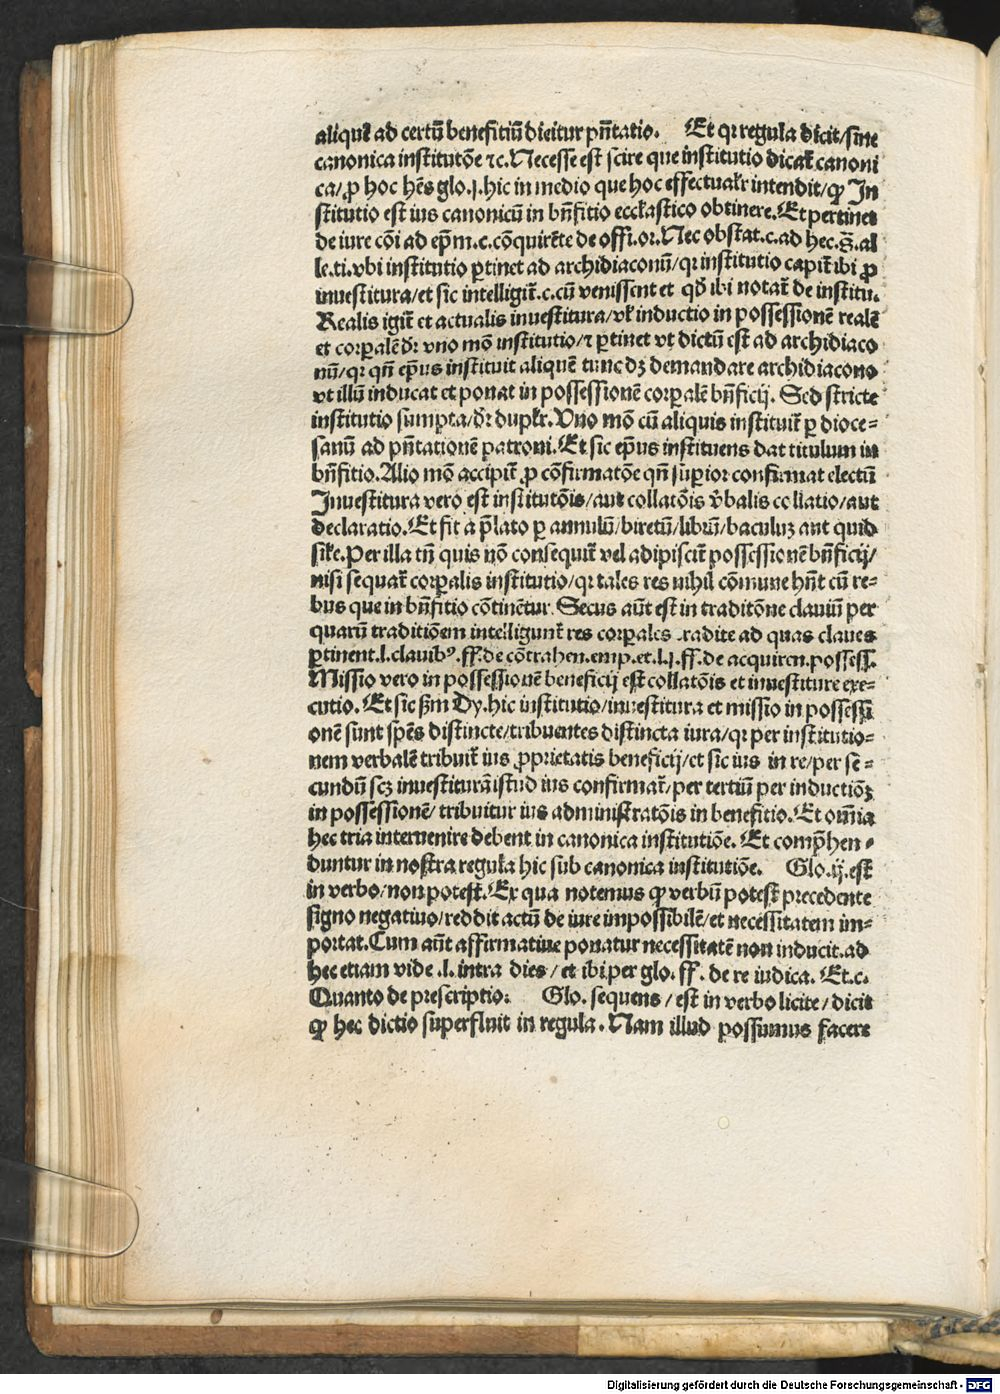 aliquẽ ad certũ benefitiũ dicitur pñtatio. Et qꝛ regula dicit/sine
canonica institutõe ⁊c. Necesse est scire que institutio dicat̃ canoni
ca/ꝓ hoc hẽs glo.j.hic in medio que hoc effectualr̃ intendit/ꝙ In
stitutio est ius canonicũ in bñfitio eccl̃astico obtinere. Et pertinet
de iure cõi ad ep̃m.c.cõquirẽte de offi.or. Nec obstat.c.ad hec.§.al
le.ti.vbi institutio ꝑtinet ad archidiaconũ/qꝛ institutio capit̃ ibi ꝓ
inuestitura/et sic intelligit̃.c.cũ venissent et qđ ibi notat̃ de institu.
Realis igit̃ et actualis inuestitura/vl̃ inductio in possessionẽ realẽ
et corꝑalẽ dꝛ̃ vno mõ institutio/⁊ ꝑtinet vt dictũ est ad archidiaco
nũ/qꝛ qñ ep̃us instituit aliquẽ tunc dꝫ demandare archidiacono
vt illũ inducat et ponat in possessionẽ corꝑalẽ bñficij. Sed stricte
institutio sumpta/dꝛ̃ duplr̃. Vno mõ cũ aliquis instituit̃ ꝑ dioce=
sanũ ad pñtationẽ patroni. Et sic ep̃us instituens dat titulum in
bñfitio. Alio mõ accipit̃ ꝓ cõfirmatõe qñ suꝑior confirmat electũ
Inuestitura vero est institutõis/aut collatõis v̾balis collatio/aut
declaratio. Et fit a p̃lato ꝑ annulũ/biretũ/librũ/baculuꝫ aut quid
sil̃e. Per illa tñ quis nõ consequit̃ vel adipiscit̃ possessionẽ bñficij/
nisi sequat̃ corꝑalis institutio/qꝛ tales res nihil cõmune hñt cũ re=
bus que in bñfitio cõtinẽtur. Secus aũt est in traditõne clauiũ per
quarũ traditiõem intelligunt̃ res corꝑales radite ad quas claues
ꝑtinent.l.clauibꝰ.ff.de cõtrahen.emp.et.l.j.ff.de acquiren.possess.
Missio vero in possessionẽ beneficij est collatõis et inuestiture exe=
cutio. Et sic ẜm Dy.hic institutio/inuestitura et missio in possessi
onẽ sunt sp̃es distincte/tribuentes distincta iura/qꝛ per institutio=
nem verbalẽ tribuit̃ ius ꝓprietatis beneficij/et sic ius in re/per se=
cundũ scꝫ inuestiturã istud ius confirmat̃/per tertiũ per inductiõꝫ
in possessionẽ/tribuitur ius administratõis in benefitio. Et om̃ia
hec tria interuenire debent in canonica institutiõe. Et comp̃hen=
duntur in nostra regula hic sub canonica institutiõe. Glo.ij.est
in verbo/non potest. Ex qua notemus ꝙ verbũ potest precedente
signo negatiuo/reddit actũ de iure impossibilẽ/et necessitatem im=
portat. Cum aũt affirmatiue ponatur necessitatẽ non inducit.ad
hec etiam vide .l. intra dies/et ibi per glo.ff. de re iudica. Et.c.
Quanto de prescriptio. Glo. sequens/est in verbo licite/dicit
ꝙ hec dictio superfluit in regula. Nam illud possumus facere
Digitalisierung gefördert durch die Deutsche Forschungsgemeinschaft - DFG